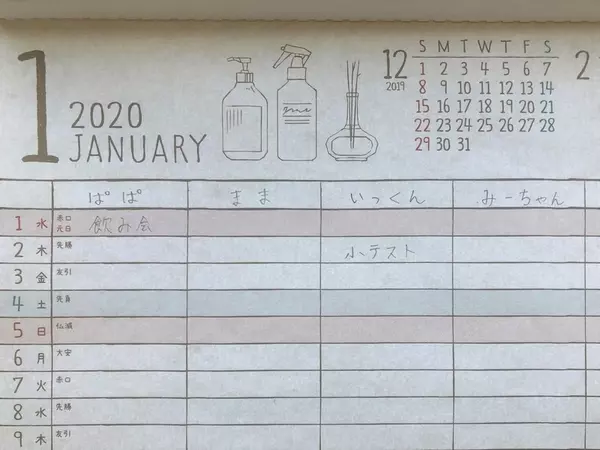 1
2020
JANUARY
12
2019
S M T W T F S
1 2 3 4 5 6 7
8 9 10 11 12 13 14
15 16 17 18 19 20 21
22 23 24 25 26 27 28
29 30 31
2
ぱぱ まま いっくん みーちゃん
1 水 赤口 元日 飲み会
2 木 先勝 小テスト
3 金 友引
4 土 先負
5 日 仏滅
6 月 大安
7 火 赤口
8 水 先勝
9 木 友引